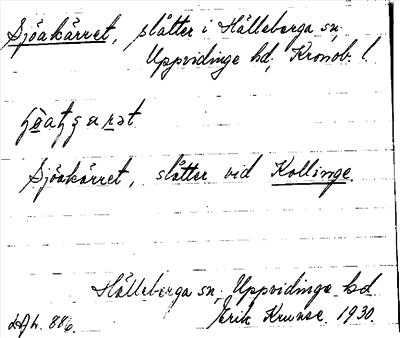 Sjöakärret, slåtter i Hälleberga sn,
Uppvidinge hd, Kronob. l.
Sjöakärret, slåtter vid Kollinge.
Hälleberga sn, Uppvidinge hd
Erik Kruuse. 1930.